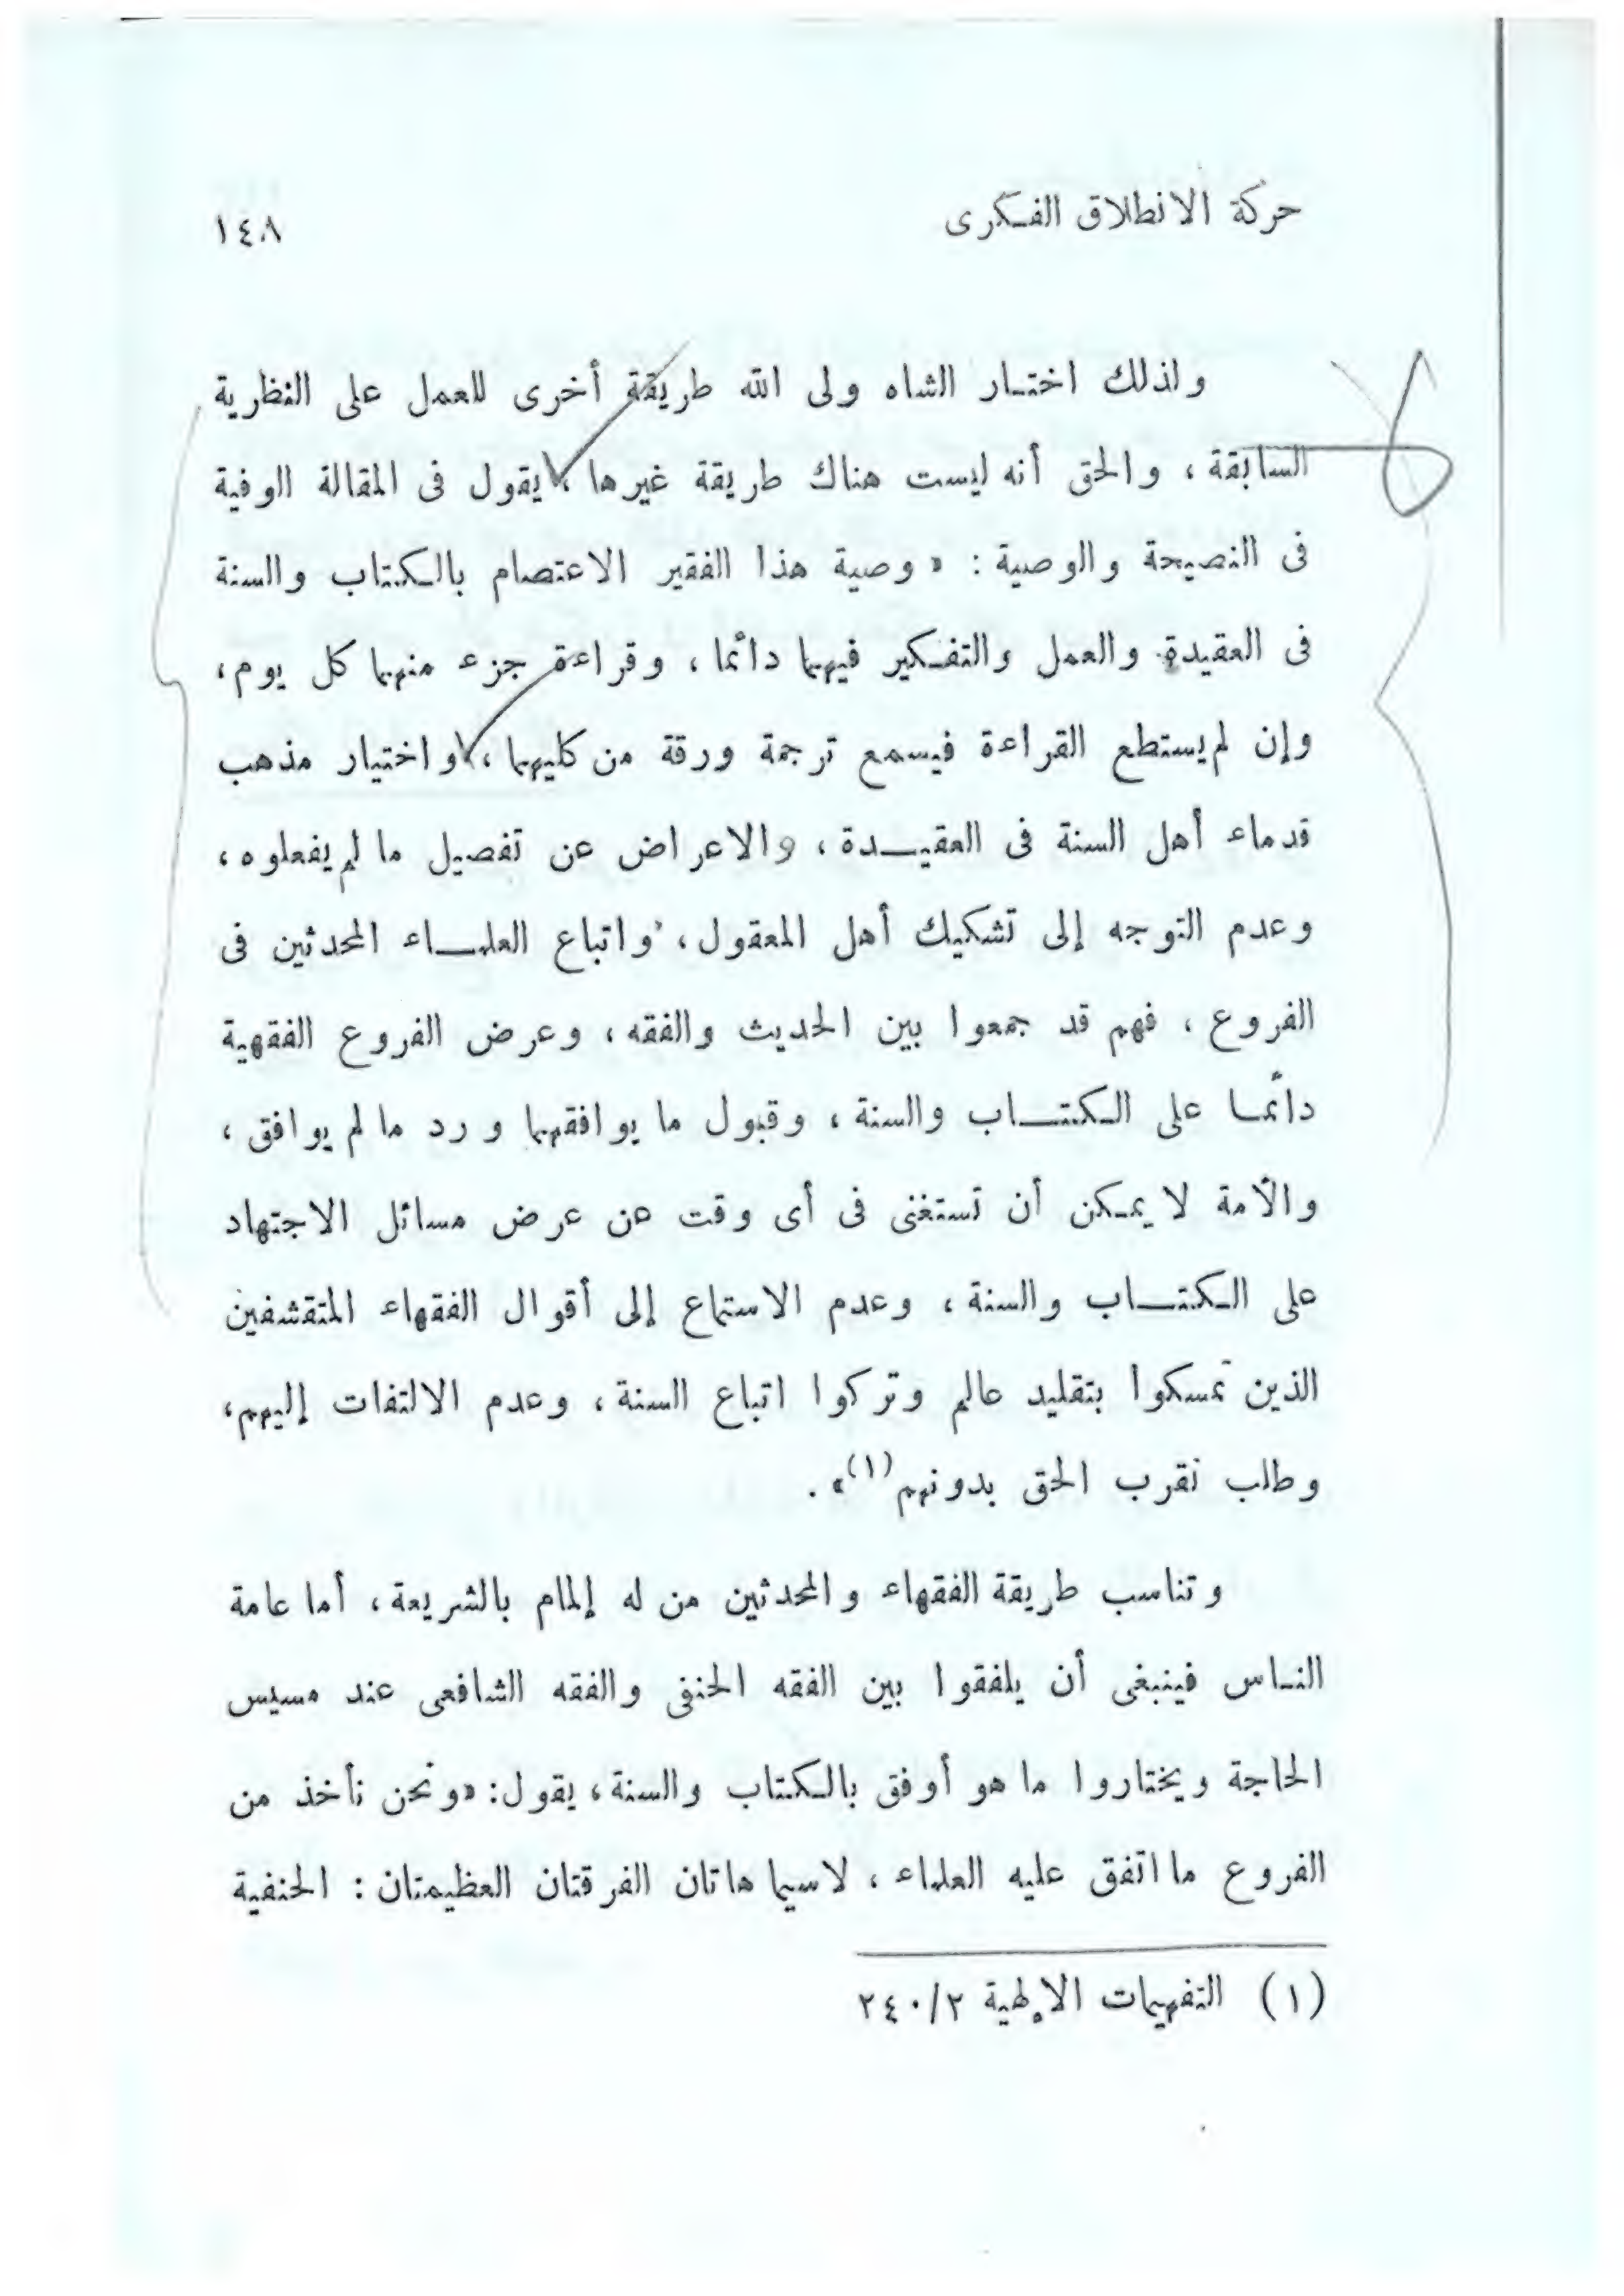 حركة الانطلاق الفكرى
١٤٨
ولذلك اختار الشاه ولى الله طريقة أخرى للعمل على النظرية
السابقة ، والحق أنه ليست هناك طريقة غيرها ، يقول فى المقالة الوفية
فى النصيحة والوصية : « وصية هذا الفقير الاعتصام بالكتاب والسنة
فى العقيدة والعمل والتفكير فيهما دائما ، وقراءة جزء منهما كل يوم ،
وإن لم يستطع القراءة فيسمع ترجمة ورقة من كليهما ، واختيار مذهب
قدماء أهل السنة فى العقيدة ، والاعراض عن تفصيل ما لم يفعلوه ،
وعدم التوجه إلى تشكيك أهل المعقول ، واتباع العلماء المحدثين فى
الفروع ، فهم قد جمعوا بين الحديث والفقه ، وعرض الفروع الفقهية
دائما على الكتاب والسنة ، وقبول ما يوافقهما ورد ما لم يوافق ،
والأمة لا يمكن أن تستغنى فى أى وقت عن عرض مسائل الاجتهاد
على الكتاب والسنة ، وعدم الاستماع إلى أقوال الفقهاء المتقشفين
الذين تمسكوا بتقليد عالم وتركوا اتباع السنة ، وعدم الالتفات إليهم ،
وطلب تقرب الحق بدونهم (١) » .
وتناسب طريقة الفقهاء والمحدثين من له إلمام بالشريعة ، أما عامة
الناس فينبغى أن يلفقوا بين الفقه الحنفى والفقه الشافعى عند مسيس
الحاجة ويختاروا ما هو أوفق بالكتاب والسنة ، يقول : « ونحن نأخذ من
الفروع ما اتفق عليه العلماء ، لاسيما هاتان الفرقتان العظيمتان : الحنفية
(١) التفهيمات الإلهية ٢/٢٤٠